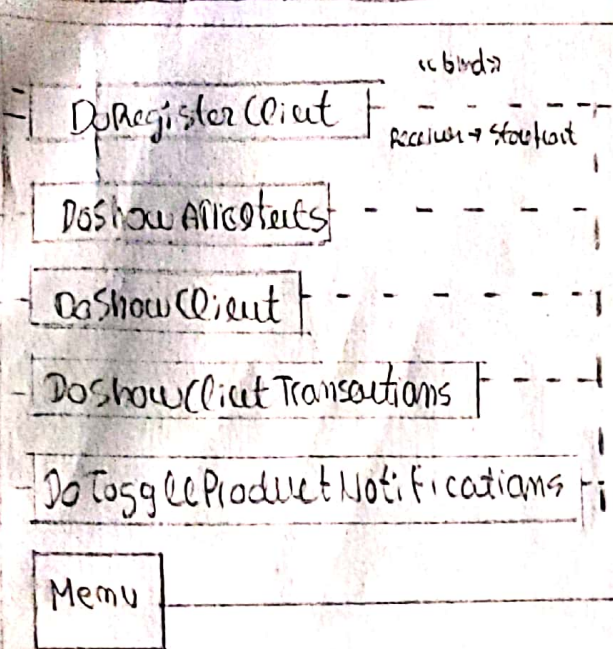 «bind»
DoRegisterClient
Receiver → Storefront
DoShowAllClients
DoShowClient
DoShowClientTransactions
DoToggleProductNotifications
Menu